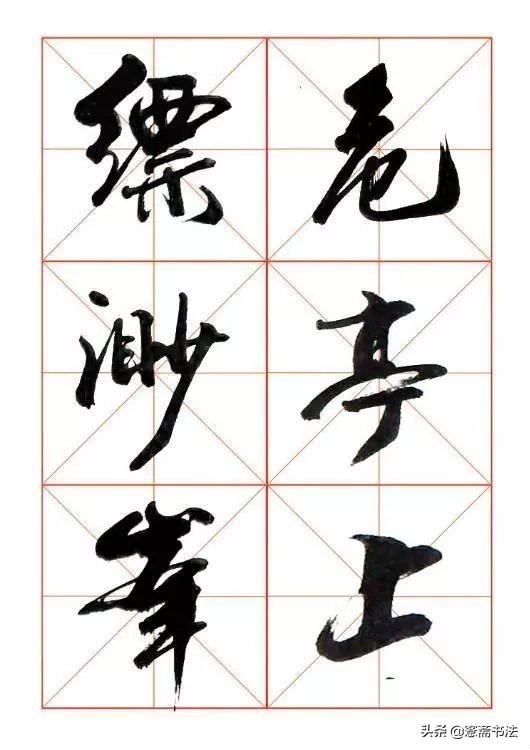 危亭上
缥渺峯
头条@寋斋书法